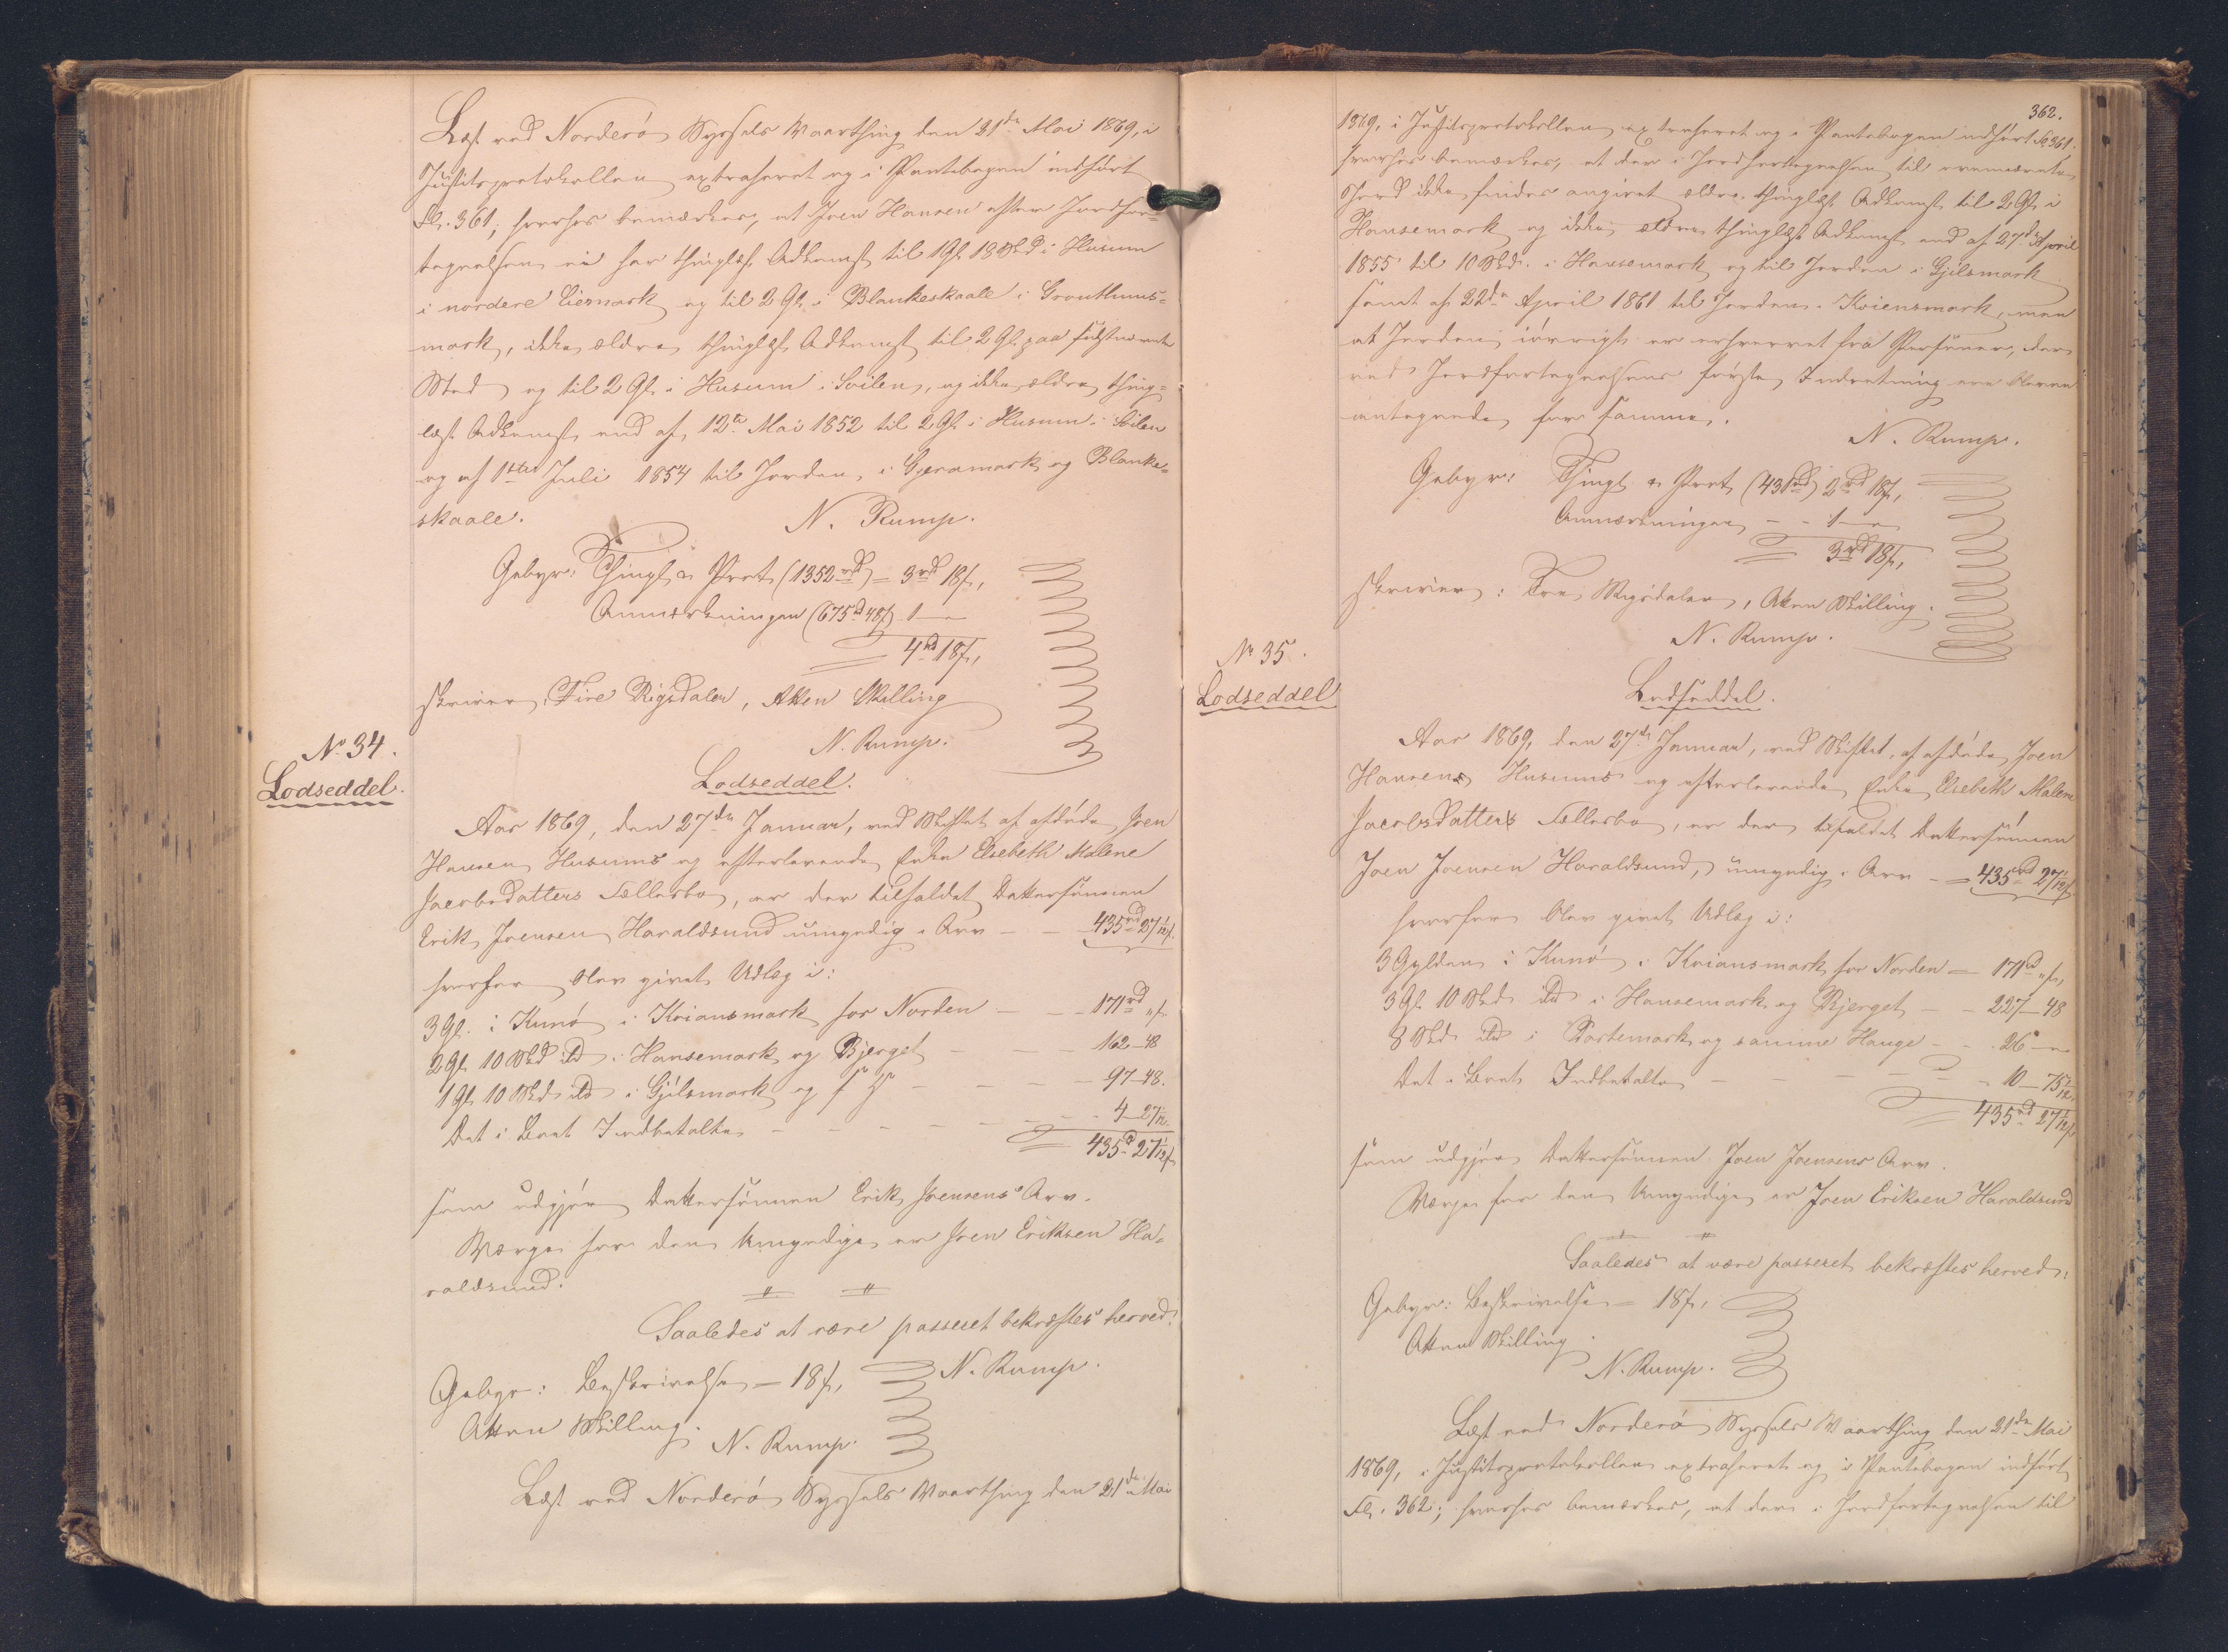 Læst ved Norderø Syssels Vaarthing den 21de Mai 1869, i
Justitsprotokollen extraheret og i Pantebogen indført
Fl. 361; hvorhos bemærkes, at Joen Hansen efter Jordfor-
tegnelsen ei har thinglæst Adkomst til 1 Gl. 18 Skd i Husum
i nordere Eiermark og til 2 Gl. i Blankeskaale i
mark, ikke ældre thinglæst Adkomst til 2 Gl. paa sidstnævnte
Sted og til 2 Gl. i Husum i Soilen, og ikke ældre thing-
læst Adkomst end af 12te Mai 1852 til 2 Gl. i Husum i Soilen
og af 1ste Juli 1854 til Jorden i og Blanke-
skaale.
N. Rump.
Gebyr: Thingl. & Prot. (1352 rd) = 3 rd 18 ß,
Anmærkningen (675 rd 48 ß) 1 — "
4 rd 18 ß,
skriver Fire Rigsdaler, Atten Skilling
N. Rump.
No 34.
Lodseddel.
Lodseddel.
Aar 1869, den 27de Januar, ved Skiftet af afdøde Joen
Hansen Husums og efterlevende Enke Elsebeth Malene
Jacobsdatters Fællesbo, er der tilfaldet Dattersønnen
Erik Joensen Haraldsund umyndig i Arv — — 435 rd 27 1/12 ß.
hvorfor blev givet Udlæg i:
3 Gl. i Kunø i Kriansmark for Norden — — 171 rd " ß.
2 Gl. 10 Skd itd i Hansemark og Bjerget — — 162 — 48
1 Gl. 10 Skd itd i Gjilsmark og — — — 97 — 48.
Det i Boet Indbetalte — — — — 4 — 27 1/12.
435 rd 27 1/12 ß
som udgjør Dattersønnen Erik Joensens Arv.
Værge for den Umyndige er Joen Eriksen Ha-
raldsund.
Saaledes at være passeret bekræftes herved.
N. Rump.
Gebyr: Beskrivelse = 18 ß,
Atten Skilling.
N. Rump.
Læst ved Norderø Syssels Vaarthing den 21de Mai
362.
1869, i Justitsprotokollen extraheret og i Pantebogen indført Fl. 361.
hvorhos bemærkes, at der i Jordfortegnelsen til ovennævnte
Jord ikke findes angivet ældre thinglæst Adkomst til 2 Gl. i
Hansemark og ikke ældre thinglæst Adkomst end af 27de April
1855 til 10 Skd. i Hansemark og til Jorden i Gjilsmark
samt af 22de April 1861 til Jorden i Kriensmark, men
at Jorden iøvrigt er erhvervet fra Personer, der
ved Jordfortegnelsens første Indretning ere blevne
antegnede for samme.
N. Rump.
Gebyr: Thingl. & Prot. (431 rd) 2 rd 18 ß,
Anmærkningen — - 1 — "
3 rd 18 ß,
skriver: Tre Rigsdaler, Atten Skilling.
N. Rump.
No 35.
Lodseddel
Lodseddel.
Aar 1869, den 27de Januar, ved Skiftet af afdøde Joen
Hansens Husums og efterlevende Enke Elsebeth Malene
Jacobsdatters Fællesbo, er der tilfaldet Dattersønnen
Joen Joensen Haraldsund, umyndig i Arv — = 435 rd 27 1/12 ß
hvorfor blev givet Udlæg i:
3 Gylden i Kunø i Kriansmark for Norden = 171 rd " ß,
3 Gl. 10 Skd itd i Hansemark og Bjerget — - 227 — 48
8 Skd itd i Portemark og samme Hauge - - 26 — "
Det i Boet Indbetalte — — — — 10 — 75 1/12
435 rd 27 1/12 ß
som udgjør Dattersønnen Joen Joensens Arv.
Værge for den Umyndige er Joen Eriksen Haraldsund
Saaledes at være passeret bekræftes herved:
Gebyr: Beskrivelse = 18 ß,
Atten Skilling.
N. Rump.
Læst ved Norderø Syssels Vaarthing den 21de Mai
1869, i Justitsprotokollen extraheret og i Pantebogen indført
Fl. 362; hvorhos bemærkes, at der i Jordfortegnelsen til